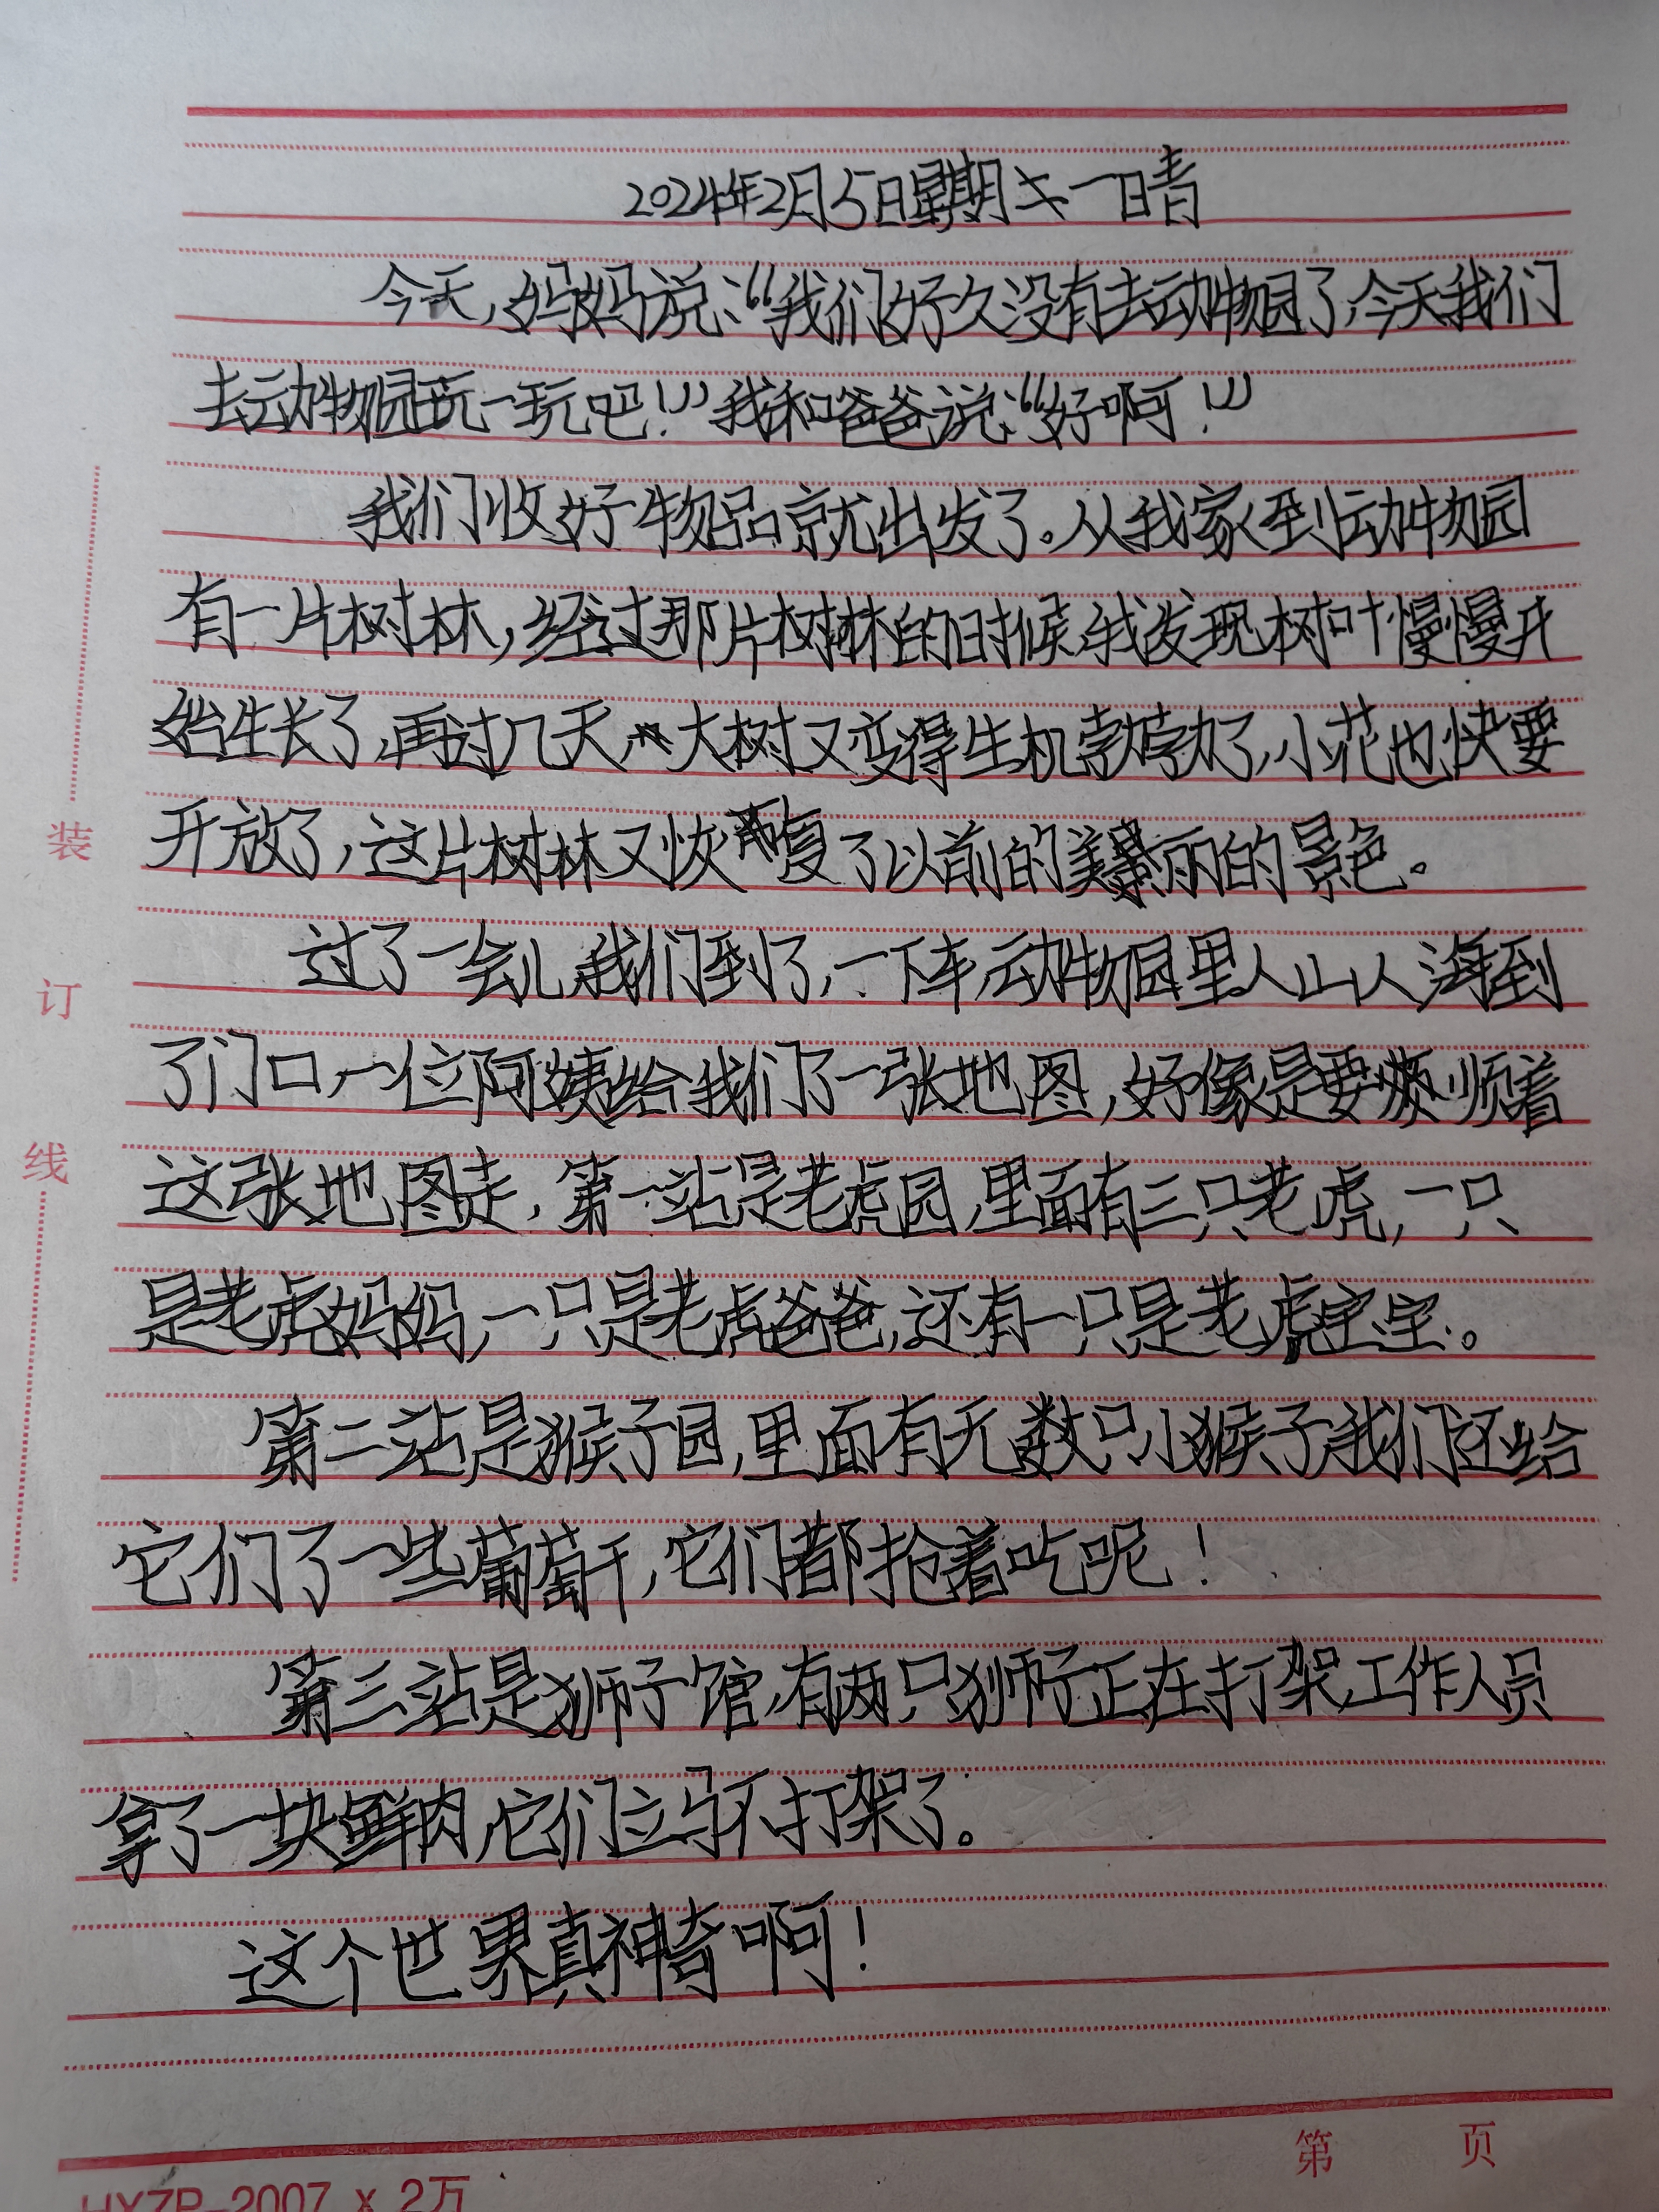 2024年2月5日星期一晴
今天,妈妈说:“我们好久没有去动物园了,今天我们
去动物园玩一玩吧!”我和爸爸说:“好啊!”
我们收好物品就出发了。从我家到动物园
有一片树林,经过那片树林的时候,我发现树叶慢慢开
始生长了,再过几天,大树又变得生机勃勃了,小花也快要
开放了,这片树林又恢复了以前的美丽的景色。
过了一会儿,我们到了,一下车,动物园里人山人海,到
了门口,一位阿姨给我们了一张地图,好像是要顺着
这张地图走,第一站是老虎园,里面有三只老虎,一只
是老虎妈妈,一只是老虎爸爸,还有一只是老虎宝宝。
第二站是猴子园,里面有无数只小猴子,我们还给
它们了一些葡萄干,它们都抢着吃呢!
第三站是狮子馆,有两只狮子正在打架,工作人员
拿了一块鲜肉,它们立马不打架了。
这个世界真神奇啊!
装
订
线
第 页
HXZP-2007 x 2万